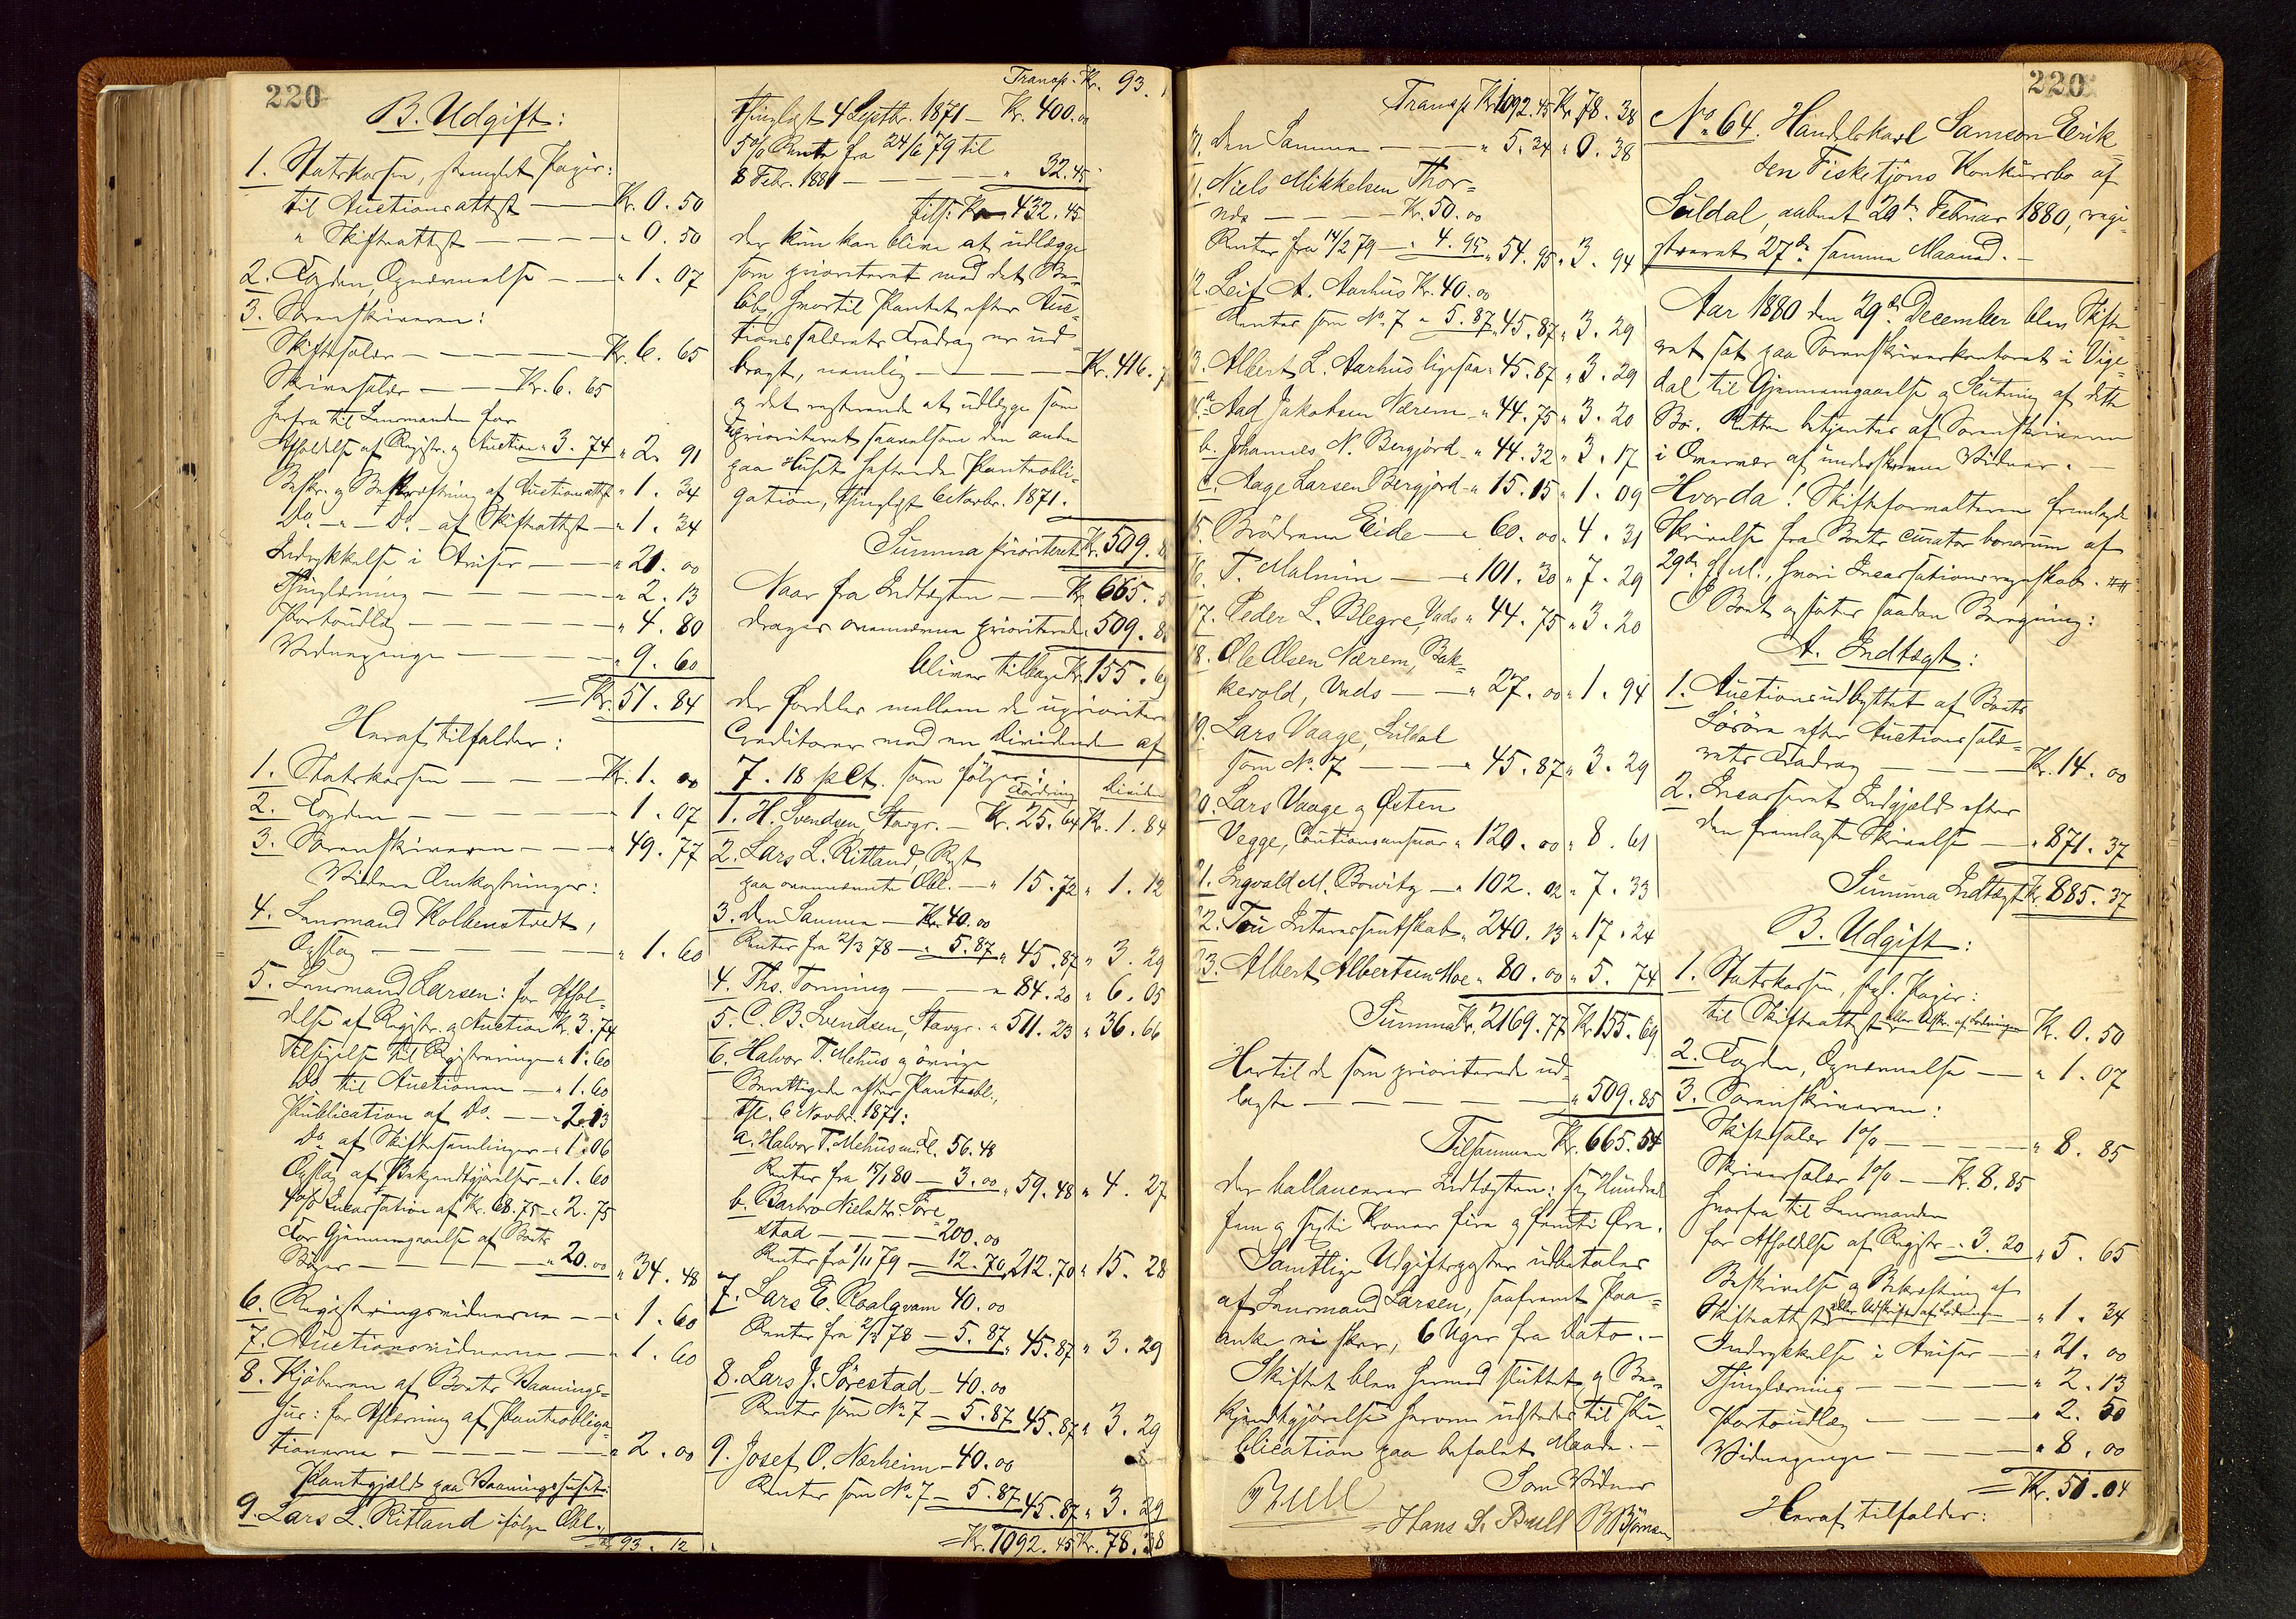 220
B. Udgift:
1. Statskassen, stemplet Papir:
til Auctionsattest — Kr. 0. 50
" Skifteattest — " 0. 50
2. Fogden, Opnævnelse — " 1. 07
3. Sorenskriveren:
Skiftesalær — Kr. 6. 65
Skriversalær — Kr. 6. 65
herfra til Lensmanden for
Afholdelse af Registr. og Auction " 3. 74 " 2. 91
Beskr. og Bekræftning af Auctionsattest " 1. 34
Do — " — Do — af Skifteattest — " 1. 34
Indrykkelse i Aviser — " 21. 00
Thinglæsning — " 2. 13
Portoudlæg — " 4. 80
Vidnepenge — " 9. 60
= Kr. 51. 84
Heraf tilfalder:
1. Statskassen — Kr. 1. 00
2. Fogden — " 1. 07
3. Sorenskriveren — " 49. 77
Videre Omkostninger:
4. Lensmand Kolbenstvedt,
Opslag — " 1. 60
5. Lensmand Larsen: for Afhol-
delse af Registr. og Auction Kr. 3. 74
Tilsigelse til Registreringen " 1. 60
Do til Auctionen — " 1. 60
Publication af Do. — " 2. 13
Do af Skiftesamlinger — " 1. 06
Opslag af Bekjendtgjørelser — " 1. 60
4 % Incassation af Kr. 68. 75 — " 2. 75
For Gjennemgaaelse af Boets
Bøger — " 20. 00 " 34. 48
6. Registreringsvidnerne — " 1. 60
7. Auctionsvidnerne — " 1. 60
8. Kjøberen af Boets Vaanings-
hus: for Aflæsning af Panteobliga-
tionerne — " 2. 00
Pantegjæld paa Vaaningshuset:
9. Lars L. Ritland ifølge Obl.,
Kr. 93. 12
Transp. Kr. 93.
thinglæst 4 Septbr. 1871 — Kr. 400. 00
5 % Rente fra 24/6 79 til
8 Febr. 1881 — " 32. 45
tils: Kr. 432. 45
der kun kan blive at udlægge
som prioriteret med det Be-
løb, hvortil Pantet efter Auc-
tionssalærets Fradrag er ud-
bragt, nemlig — Kr. 416.
og det resterende at udlægge som
uprioriteret saavelsom den anden
paa Huset heftende Panteobli-
gation, thinglæst 6 Novbr. 1871.
Summa prioriteret Kr. 509.
Naar fra Indtægten — Kr. 665.
drages ovennævnte prioriterede " 509.
bliver tilbage Kr. 155.
der fordeles mellem de uprioriterede
Creditorer med en Dividende af
7. 18 pCt. som følger:
Fordring Dividen
1. H. Svendsen, Stavgr. — Kr. 25. 64 Kr. 1. 84
2. Lars L. Ritland, Rest
paa ovennævnte Obl. — " 15. 72 " 1. 12
3. Den Samme — Kr. 40. 00
Renter fra 2/3 78 — " 5. 87 " 45. 87 " 3. 29
4. Ths. Torning — " 84. 20 " 6. 05
5. C. B. Svendsen, Stavgr. " 511. 23 " 36. 66
6. Halvor T. Mehus og øvrige
Berettigede efter Panteobl.,
thl. 6 Novbr. 1871:
a. Halvor T. Mehus 56. 48
Renter fra 15/1 80 — 3. 00 " 59. 48 " 4. 27
b. Barbro Nielsdtr. Søre-
stad — 200. 00
Renter fra 1/11 79 — 12. 70 " 212. 70 " 15. 28
7. Lars E. Roalqvam 40. 00
Renter fra 2/3 78 — 5. 87 " 45. 87 " 3. 29
8. Lars J. Sørestad — 40. 00
Renter som No. 7 — 5. 87 " 45. 87 " 3. 29
9. Josef O. Nærheim — 40. 00
Renter som No. 7 — 5. 87 " 45. 87 " 3. 29
= Kr. 1092. 45 Kr. 78. 38
220
Transp. Kr. 1092. 45 Kr. 78. 38
Den Samme — " 5. 34 " 0. 38
11. Niels Mikkelsen Thor-
— Kr. 50. 00
Renter fra 14/2 79 — " 4. 95 " 54. 95 " 3. 94
12. Leif A. Aarhus Kr. 40. 00
Renter som No. 7 " 5. 87 " 45. 87 " 3. 29
13. Albert L. Aarhus ligesaa " 45. 87 " 3. 29
a. Aad Jakobsen Nærem — " 44. 75 " 3. 20
b. Johannes N. Bergjord — " 44. 32 " 3. 17
c. Aage Larsen Bergjord — " 15. 15 " 1. 09
15. Brødrene Eide — " 60. 00 " 4. 31
16. T. Malmin — " 101. 30 " 7. 29
17. Peder L. Blegre, Vads " 44. 75 " 3. 20
18. Ole Olsen Nærem, Bak-
kevold, Vads — " 27. 00 " 1. 94
19. Lars Vaage, Suldal
som No. 7 — " 45. 87 " 3. 29
20. Lars Vaage og Østen
Vegge, Cautionsansvar " 120. 00 " 8. 61
21. Ingvald M. Bowitz — " 102. 02 " 7. 33
22. Tou Interessentskab " 240. 13 " 17. 24
23. Albert Albertsen Moe " 80. 00 " 5. 74
Summa Kr. 2169. 77 Kr. 155. 69
Hertil de som prioriterede ud-
lagte — " 509. 85
Tilsammen Kr. 665. 54
der ballancerer Indtægten: sex Hundrede
fem og sexti Kroner fire og femti Øre.
Samtlige Udgiftsposter udbetales
af Lensmand Larsen, saafremt Paa-
anke ei sker, 6 Uger fra Dato. —
Skiftet blev hermed sluttet og Be-
kjendtgjørelse herom udstedes til Pu-
blication paa befalet Maade. —
Bull
Som Vidner
Hans S. Bull B Bjørnsen
No. 64. Handelskarl Samson Erik-
sen Fisketjøns Konkursbo af
Suldal, aabnet 20de Februar 1880, regi-
streret 27de samme Maaned. —
Aar 1880 den 29de December blev Skifte-
ret sat paa Sorenskriverkontoret i Vige-
dal til Gjennemgaaelse og Slutning af dette
Bo. Retten betjentes af Sorenskriveren
i Overvær af underskrevne Vidner. —
Hvorda! Skifteforvalteren fremlagde
Skrivelse fra Boets curator bonorum af
29de f. M., hvori Incassationsregnskab.
I Boet opsattes saadan Beregning:
A. Indtægt:
1. Auctionsudbyttet af Boets
Løsøre efter Auctionssalæ-
rets Fradrag — Kr. 14. 00
2. Incasseret Indgjæld efter
den fremlagte Skrivelse — " 871. 37
Summa Indtægt Kr. 885. 37
B. Udgift:
1. Statskassen, stpl. Papir:
til Skifteattest eller Udskr. af Lodningen Kr. 0. 50
2. Fogden, Opnævnelse — " 1. 07
3. Sorenskriveren:
Skiftesalær 1 % — " 8. 85
Skriversalær 1 % — Kr. 8. 85
hvorfra til Lensmanden
for Afholdelse af Registr. — " 3. 20 " 5. 65
Beskrivelse og Bekræftning af
Skifteattest eller Udskrift af Lodningen — " 1. 34
Indrykkelse i Aviser — " 21. 00
Thinglæsning — " 2. 13
Portoudlæg — " 2. 50
Vidnepenge — " 8. 00
= Kr. 51. 04
Heraf tilfalder: